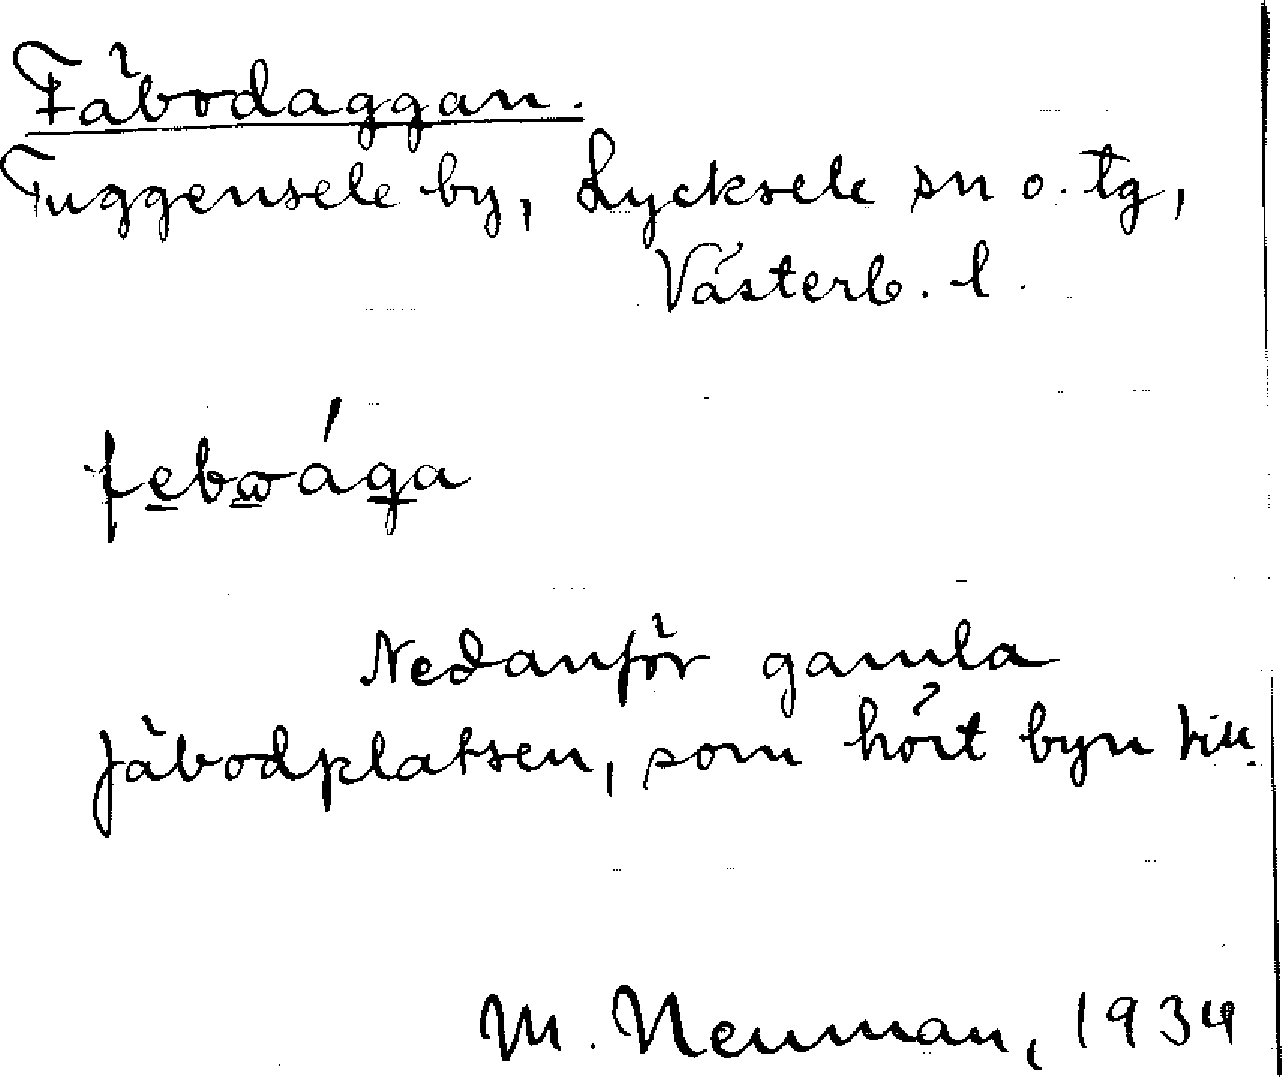 Fäbodaggan.
Tuggensele by, Lycksele sn o. tg,
Västerb. l.
febωága
Nedanför gamla
fäbodplatsen, som hört byn till.
M. Neuman, 1934